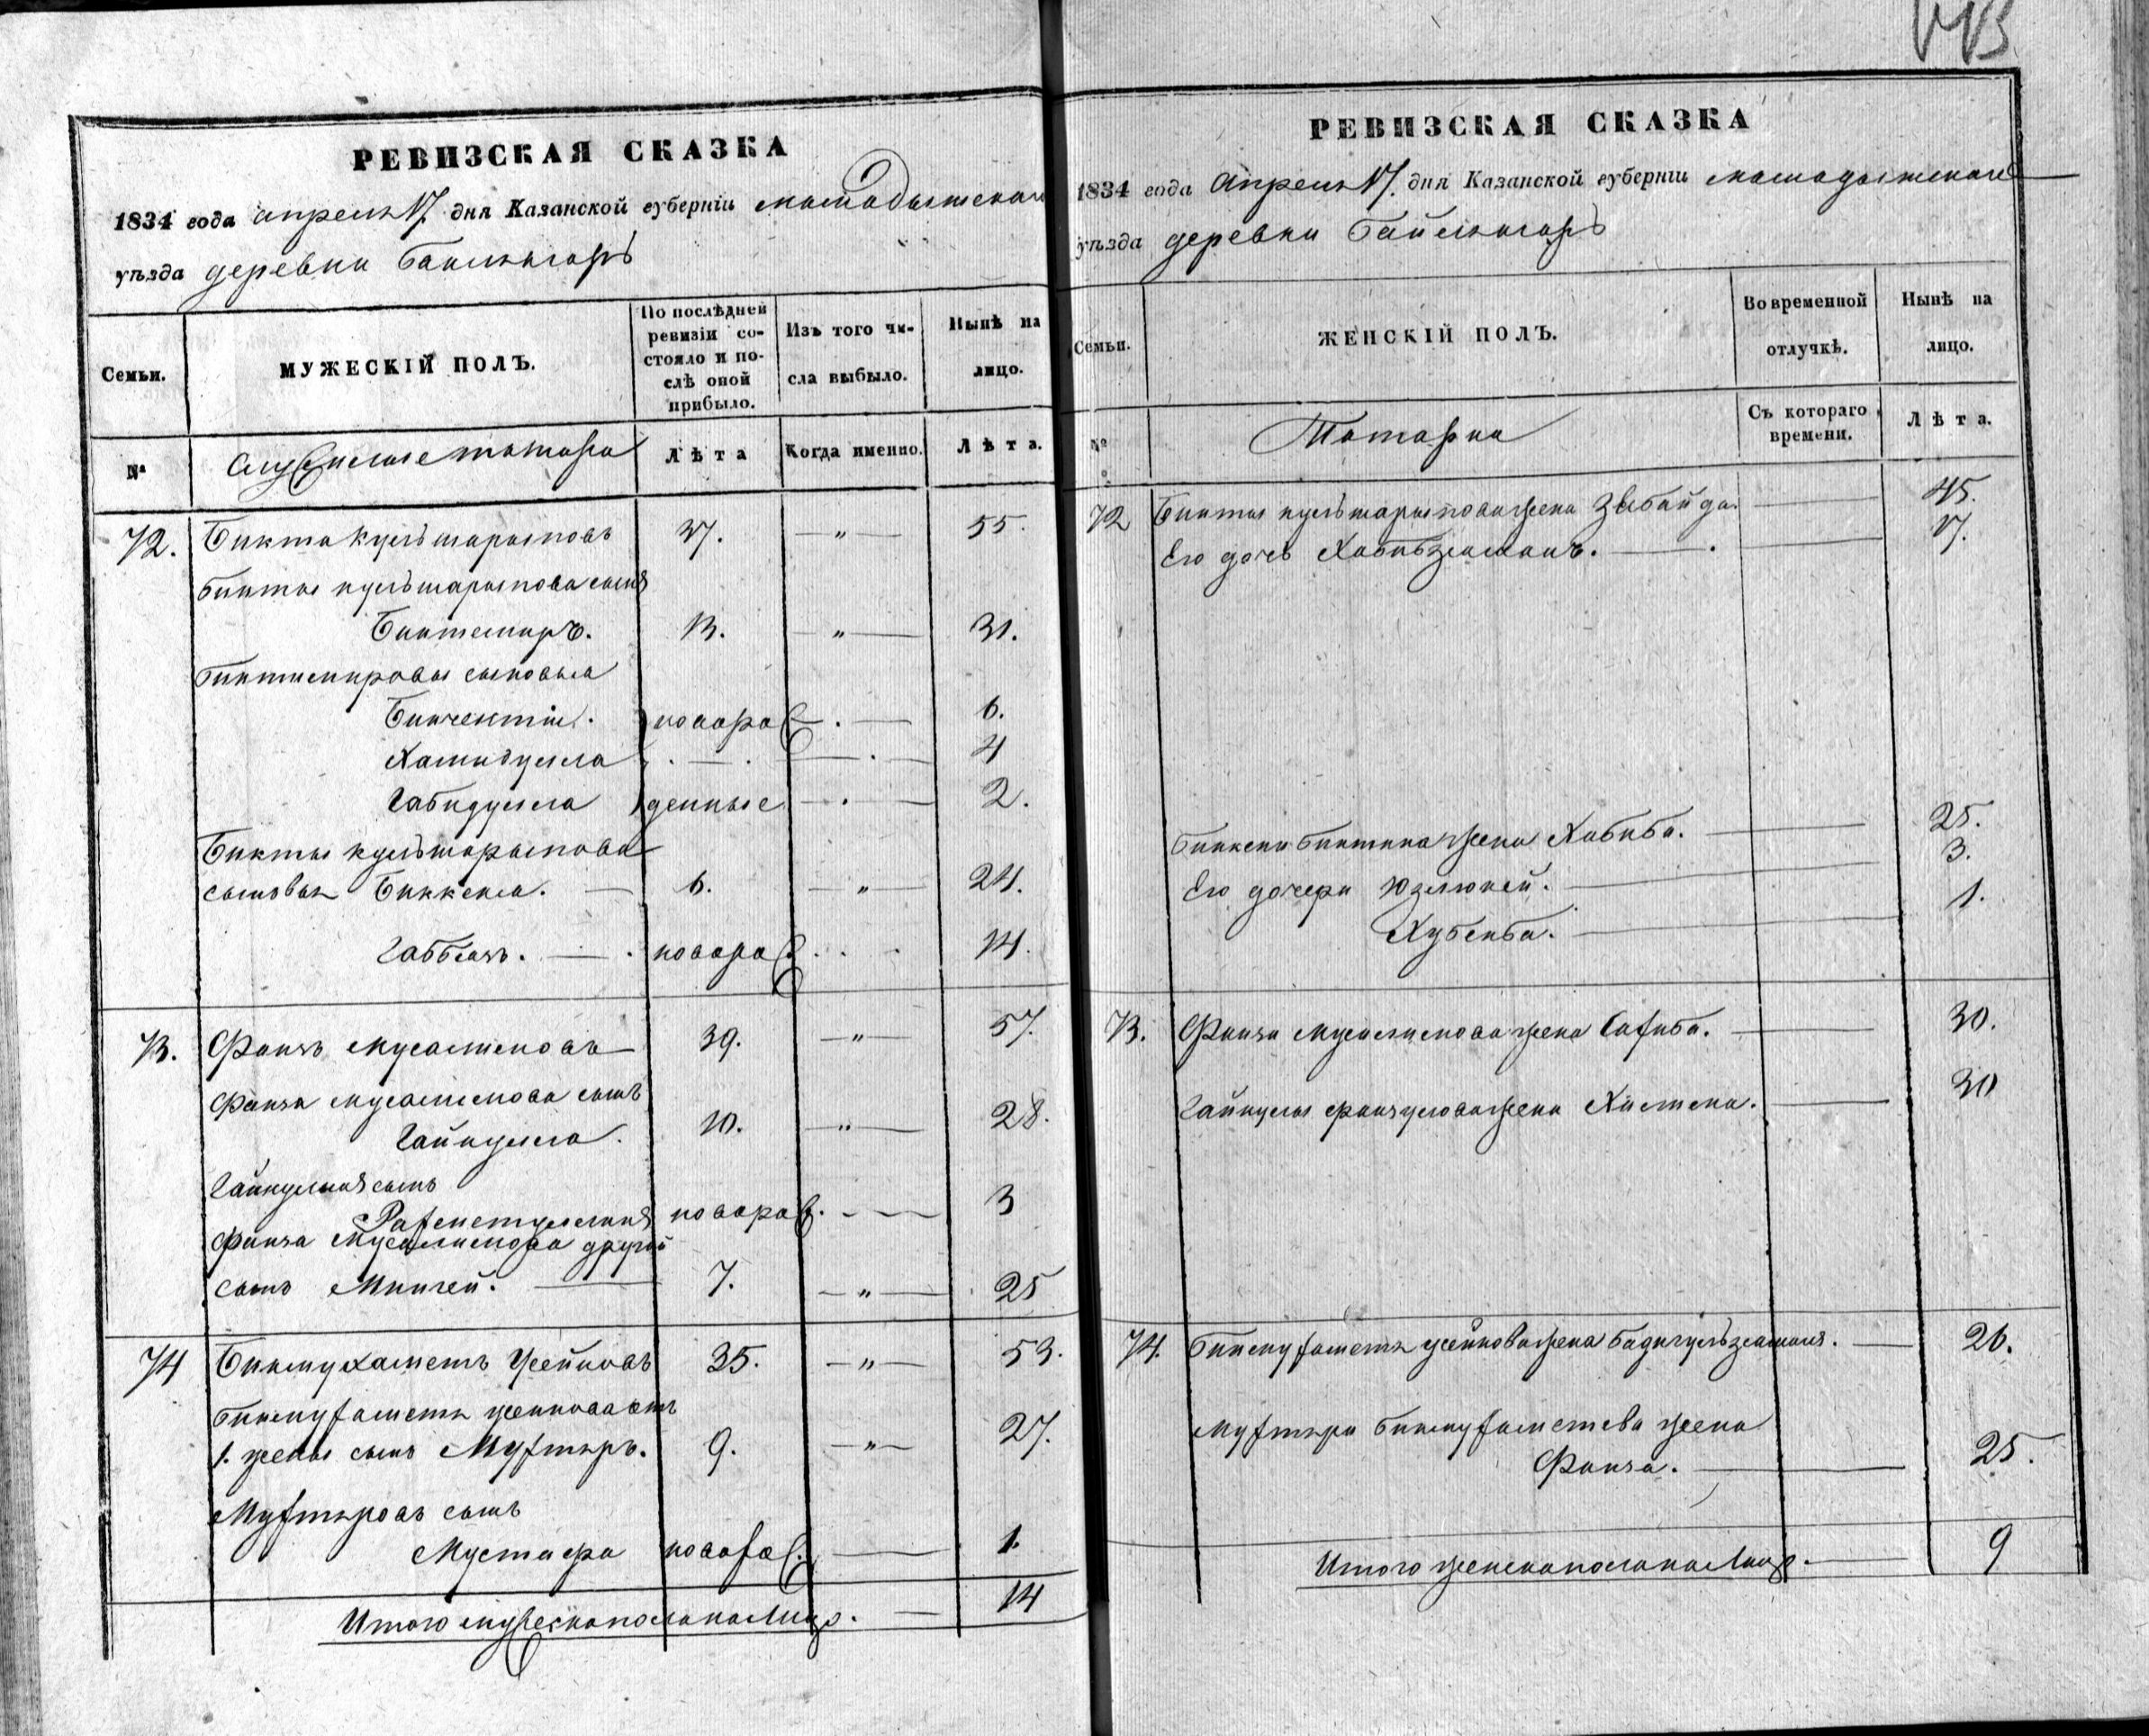 РЕВИЗСКАЯ СКАЗКА
1834 года апреля 17. дня Казанской губерніи мамадышскаго
уѣзда деревни Баилнгаръ
Семьи.
МУЖЕСКІЙ ПОЛЪ.
По послѣдней ревизіи состояло и послѣ оной прибыло.
Изъ того числа выбыло.
Нынѣ на лицо.
№
Служилые татара
Лѣта
Когда именно.
Лѣта.
72. Бикта Кульшарыповъ 37. — " — 55.
Бикты кульшарыпова сынъ
Биктемиръ. 13. — " — 31.
Биктимировы сыновья
Бикчентій. новорож 6.
Хамидулла 4
Габидулла денные 2.
Бикты кульшарыпова
сыновья Биккеня. — 6. — " — 24.
Габбасъ. — новорож. 14.
73. Фаизъ мусалимовъ 39. — " — 57.
Фаиза мусалимова сынъ
Гайнулла. 10. — " — 28.
Гайнуллинъ сынъ
Рахметуллинъ новорож. 3
Фаиза Мусалимова другой
сынъ Минчей. — 7. — " — 25
74 Бикмухаметъ Усейновъ 35. — " — 53.
Бикмухаметя усейнова отъ
1. жены сынъ Мухтяръ. 9. — " — 27.
Мухтяровъ сынъ
Мустафа новорож. — 1.
Итого мужеска пола на лицо. — 14
РЕВИЗСКАЯ СКАЗКА
1834 года апреля 17. дня Казанской губерніи мамадышскаго
уѣзда деревни Байлнгаръ
Семьи.
ЖЕНСКІЙ ПОЛЪ.
Во временной отлучкѣ.
Нынѣ на лицо.
№
Татарки
Съ котораго времени.
Лѣта.
72 Бикты кульшарыпова жена Зюбайда. — 45.
Его дочь Хабибзямалъ. — 17.
Биккени биктина жена Хабиба. — 25.
Его дочери Юзлюкей. — 3.
Хубенба. — 1.
73. Фаиза мусалимова жена Сахиба. — 30.
Гайнуллы фаизулова жена Халима. — 30
74. Бикмухаметя усейнова жена Бадигульзямаля. — 26.
Мухтяра бикмухаметева жена
Фаиза. — 25.
Итого женска пола на лицо. — 9